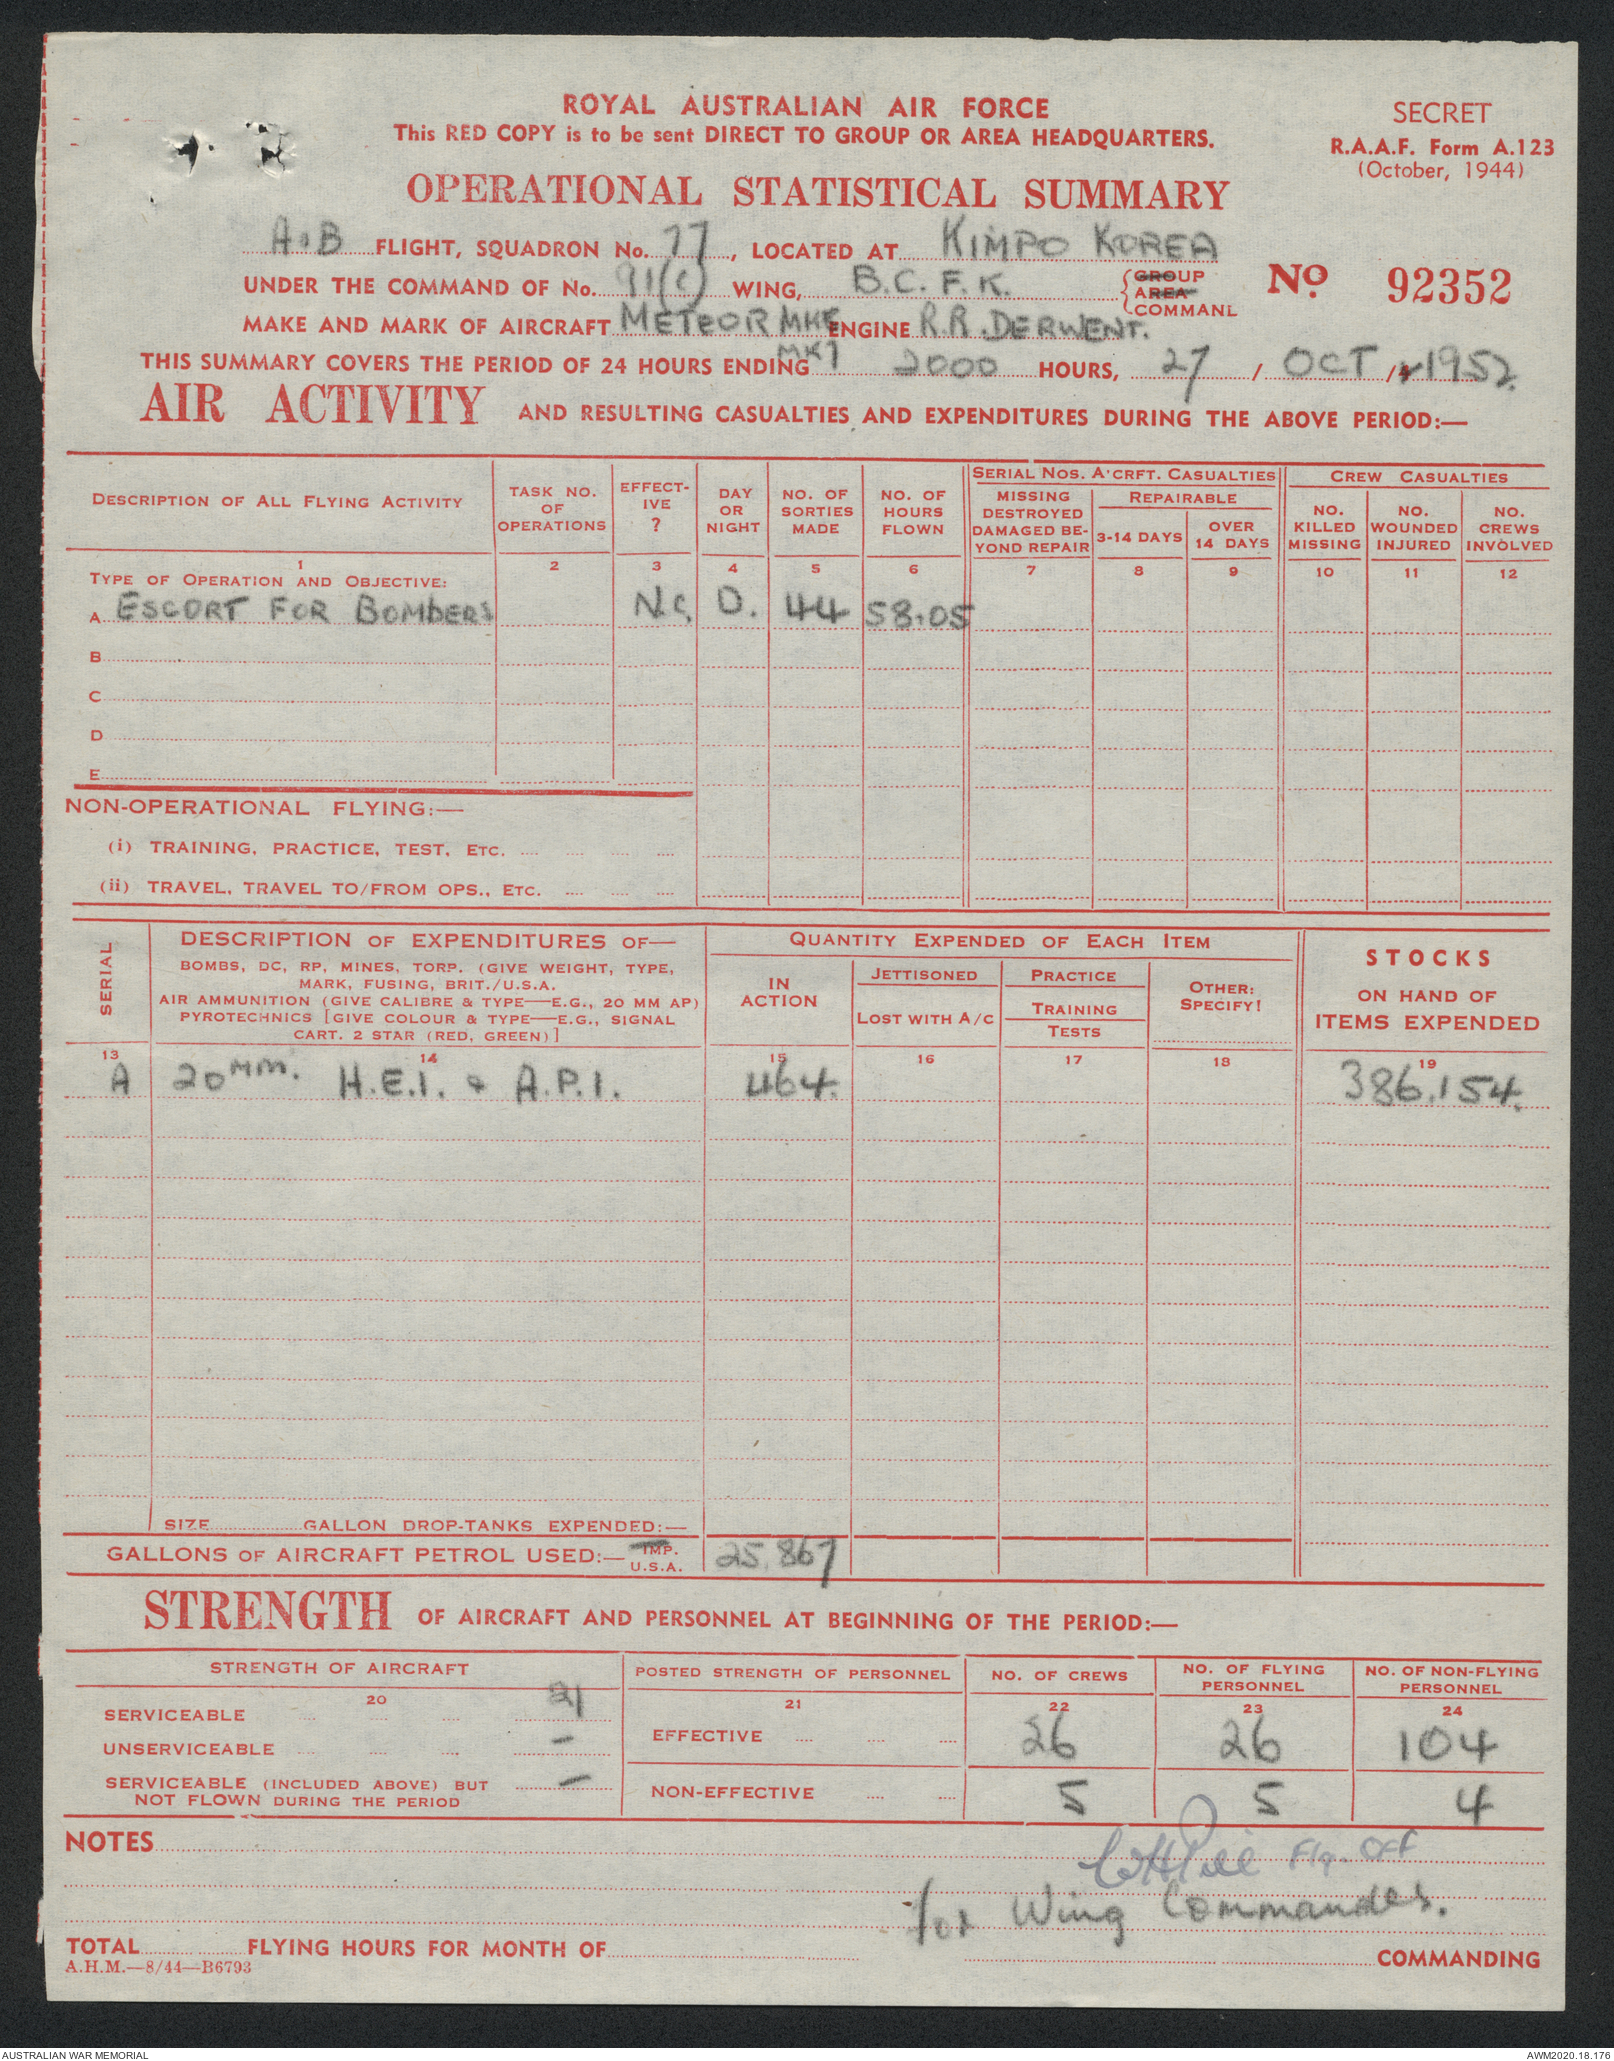 ROYAL AUSTRALIAN AIR FORCE
This RED COPY is to be sent DIRECT TO GROUP OR AREA HEADQUARTERS.
SECRET
R.A.A.F. Form A.123
(October, 1944)
OPERATIONAL STATISTICAL SUMMARY
A & B FLIGHT, SQUADRON No. 77, LOCATED AT KIMPO KOREA
UNDER THE COMMAND OF No. 91(C) WING, B.C.F.K. GROUP AREA COMMAND
No. 92352
MAKE AND MARK OF AIRCRAFT METEOR MK8 ENGINE R.R. DERWENT.
THIS SUMMARY COVERS THE PERIOD OF 24 HOURS ENDING 2000 HOURS, 27 / OCT / 1952
AIR ACTIVITY AND RESULTING CASUALTIES AND EXPENDITURES DURING THE ABOVE PERIOD:—
DESCRIPTION OF ALL FLYING ACTIVITY
TASK NO. OF OPERATIONS
EFFECT-IVE ?
DAY OR NIGHT
NO. OF SORTIES MADE
NO. OF HOURS FLOWN
SERIAL NOS. A'CRFT. CASUALTIES
MISSING DESTROYED DAMAGED BE-YOND REPAIR
REPAIRABLE
3-14 DAYS
OVER 14 DAYS
CREW CASUALTIES
NO. KILLED MISSING
NO. WOUNDED INJURED
NO. CREWS INVOLVED
1 2 3 4 5 6 7 8 9 10 11 12
TYPE OF OPERATION AND OBJECTIVE:
A ESCORT FOR BOMBERS N.C. D. 44 58.05
B
C
D
E
NON-OPERATIONAL FLYING:—
(i) TRAINING, PRACTICE, TEST, ETC.
(ii) TRAVEL, TRAVEL TO/FROM OPS., ETC.
SERIAL
DESCRIPTION OF EXPENDITURES OF—
BOMBS, DC, RP, MINES, TORP. (GIVE WEIGHT, TYPE,
MARK, FUSING, BRIT./U.S.A.
AIR AMMUNITION (GIVE CALIBRE & TYPE—E.G., 20 MM AP)
PYROTECHNICS [GIVE COLOUR & TYPE—E.G., SIGNAL
CART. 2 STAR (RED, GREEN)]
QUANTITY EXPENDED OF EACH ITEM
IN ACTION
JETTISONED
LOST WITH A/C
PRACTICE
TRAINING
TESTS
OTHER: SPECIFY!
STOCKS
ON HAND OF
ITEMS EXPENDED
13 14 15 16 17 18 19
A 20 MM. H.E.I. & A.P.I. 464. 386,154.
SIZE GALLON DROP-TANKS EXPENDED:—
GALLONS OF AIRCRAFT PETROL USED:— IMP. U.S.A. 25,867
STRENGTH OF AIRCRAFT AND PERSONNEL AT BEGINNING OF THE PERIOD:—
STRENGTH OF AIRCRAFT
POSTED STRENGTH OF PERSONNEL
NO. OF CREWS
NO. OF FLYING PERSONNEL
NO. OF NON-FLYING PERSONNEL
20 21 22 23 24
SERVICEABLE 21
UNSERVICEABLE —
SERVICEABLE (INCLUDED ABOVE) BUT —
NOT FLOWN DURING THE PERIOD
EFFECTIVE 26 26 104
NON-EFFECTIVE 5 5 4
NOTES
Flg. Off
for Wing Commander.
TOTAL FLYING HOURS FOR MONTH OF COMMANDING
A.H.M.—8/44—B6793
AUSTRALIAN WAR MEMORIAL
AWM2020.18.176